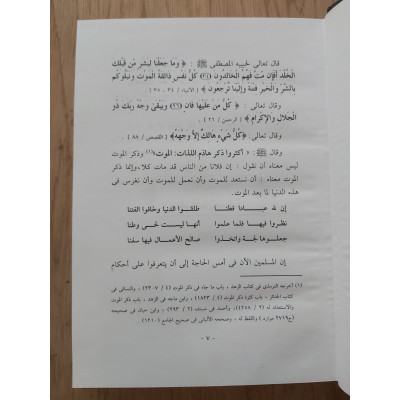 قال تعالى لحبيبه المصطفى ﷺ : ﴿ وما جعلنا لبشر من قبلك
الخلد أفإن مت فهم الخالدون (٣٤) كل نفس ذائقة الموت ونبلوكم
بالشر والخير فتنة وإلينا ترجعون ﴾ [ الأنبياء / ٣٤ ، ٣٥ ] .
وقال تعالى : ﴿ كل من عليها فان (٢٦) ويبقى وجه ربك ذو
الجلال والإكرام ﴾ [ الرحمن / ٢٦ ] .
وقال تعالى : ﴿كل شيء هالك إلا وجهه﴾ [ القصص / ٨٨ ] .
وقال ﷺ : « أكثروا ذكر هاذم اللذات: الموت»(١) وذكر الموت
ليس معناه أن نقول : إن فلانا من الناس قد مات كلا، وإنما ذكر
الموت معناه : أن نستعد للموت وأن نعمل للموت وأن نغرس فى
هذه الدنيا لما بعد الموت.
إن لله عبادا فطنا طلقوا الدنيا وخافوا الفتنا
نظروا فيها فلما علموا أنها ليست لحى وطنا
جعلوها لجة واتخذوا صالح الأعمال فيها سفنا
إن المسلمين الآن فى أمس الحاجة إلى أن يتعرفوا على أحكام
(١) أخرجه الترمذى فى كتاب الزهد ، باب ما جاء فى ذكر الموت (٤ / ٢٣٠٧) ، والنسائى فى
كتاب الجنائز ، باب كثرة ذكر الموت (٤ / ١٨٢٣) ، وابن ماجه فى الزهد ، باب ذكر الموت
والاستعداد له (٢ / ٤٢٥٨) ، وأحمد فى مسنده (٢ / ٢٩٣) ، وابن حبان فى صحيحه
(ح٢٧١٩ موارد) واللفظ له ، وصححه الألبانى فى صحيح الجامع (١٢١٠) .
- ٧ -